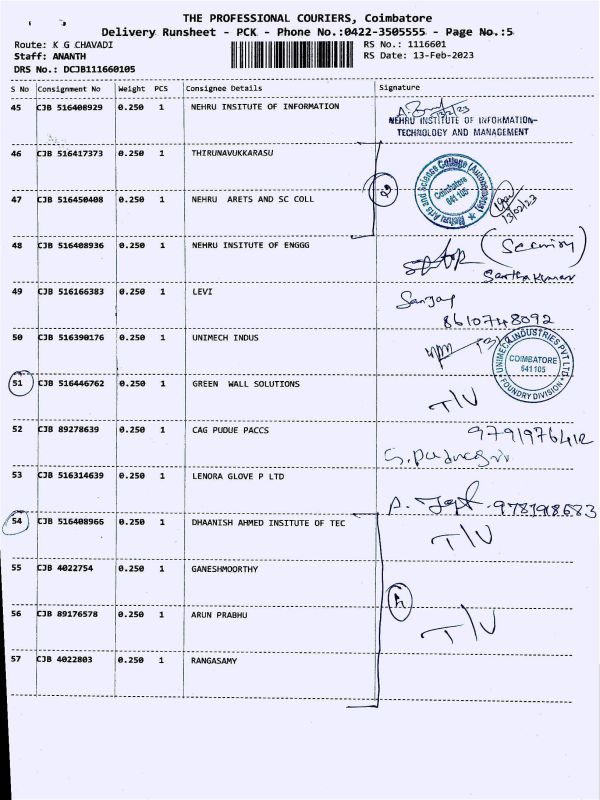 THE PROFESSIONAL COURIERS, Coimbatore
Delivery Runsheet - PCK - Phone No.:0422-3505555 - Page No.:5
Route: K G CHAVADI
RS No.: 1116601
Staff: ANANTH
RS Date: 13-Feb-2023
DRS No.: DCJB111660105
S No Consignment No Weight PCS Consignee Details Signature
45 CJB 516408929 0.250 1 NEHRU INSITUTE OF INFORMATION
13/2/23
NEHRU INSTITUTE OF INFORMATION-
TECHNOLOGY AND MANAGEMENT
46 CJB 516417373 0.250 1 THIRUNAVUKKARASU
Nehru Arts and Science College (Autonomous)
Coimbatore
641 105
13/02/23
47 CJB 516450408 0.250 1 NEHRU ARETS AND SC COLL
48 CJB 516408936 0.250 1 NEHRU INSITUTE OF ENGGG
(Security)
49 CJB 516166383 0.250 1 LEVI
Sanjay
8610748092
50 CJB 516390176 0.250 1 UNIMECH INDUS
UNIMECH INDUSTRIES PVT LTD
COIMBATORE
641 105
FOUNDRY DIVISION
51 CJB 516446762 0.250 1 GREEN WALL SOLUTIONS
T/U
52 CJB 89278639 0.250 1 CAG PUDUE PACCS
53 CJB 516314639 0.250 1 LENORA GLOVE P LTD
54 CJB 516408966 0.250 1 DHAANISH AHMED INSITUTE OF TEC
T/U
55 CJB 4022754 0.250 1 GANESHMOORTHY
56 CJB 89176578 0.250 1 ARUN PRABHU
T/U
57 CJB 4022803 0.250 1 RANGASAMY